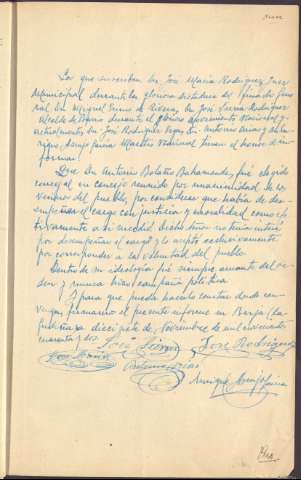 Los que suscriben Dn. José María Rodríguez, Juez
Municipal durante la gloriosa dictadura del General
Dn Miguel Primo de Rivera, Dn José García Rodríguez
Alcalde de durante el glorioso Nacional y
actualmente Dn. José Rodríguez Dn Antonio Arias y Dn En-
rique Araujo García Maestro Nacional tienen el honor de in-
formar:
Que Dn Antonio Bolaño Bahamonde, fué elegido
concejal en concejo reunido por unanimidad de los
vecinos del pueblo, por considerar que había de de-
sempeñar el cargo con justicia y moralidad como efec-
tivamente así sucedió. Dicho Señor no tenía interés
por desempeñar el cargo y lo aceptó exclusivamente
por corresponder a la voluntad del pueblo.
Dentro de su ideología fué siempre amante del or-
den y nunca hizo campaña política.
Y para que pueda hacerlo constar donde con-
venga firmamos el presente informe en
a diecisiete de Noviembre de mil novecientos
cuarenta y dos.
José García José Rodríguez
José María Antonio Arias
Enrique Araujo García